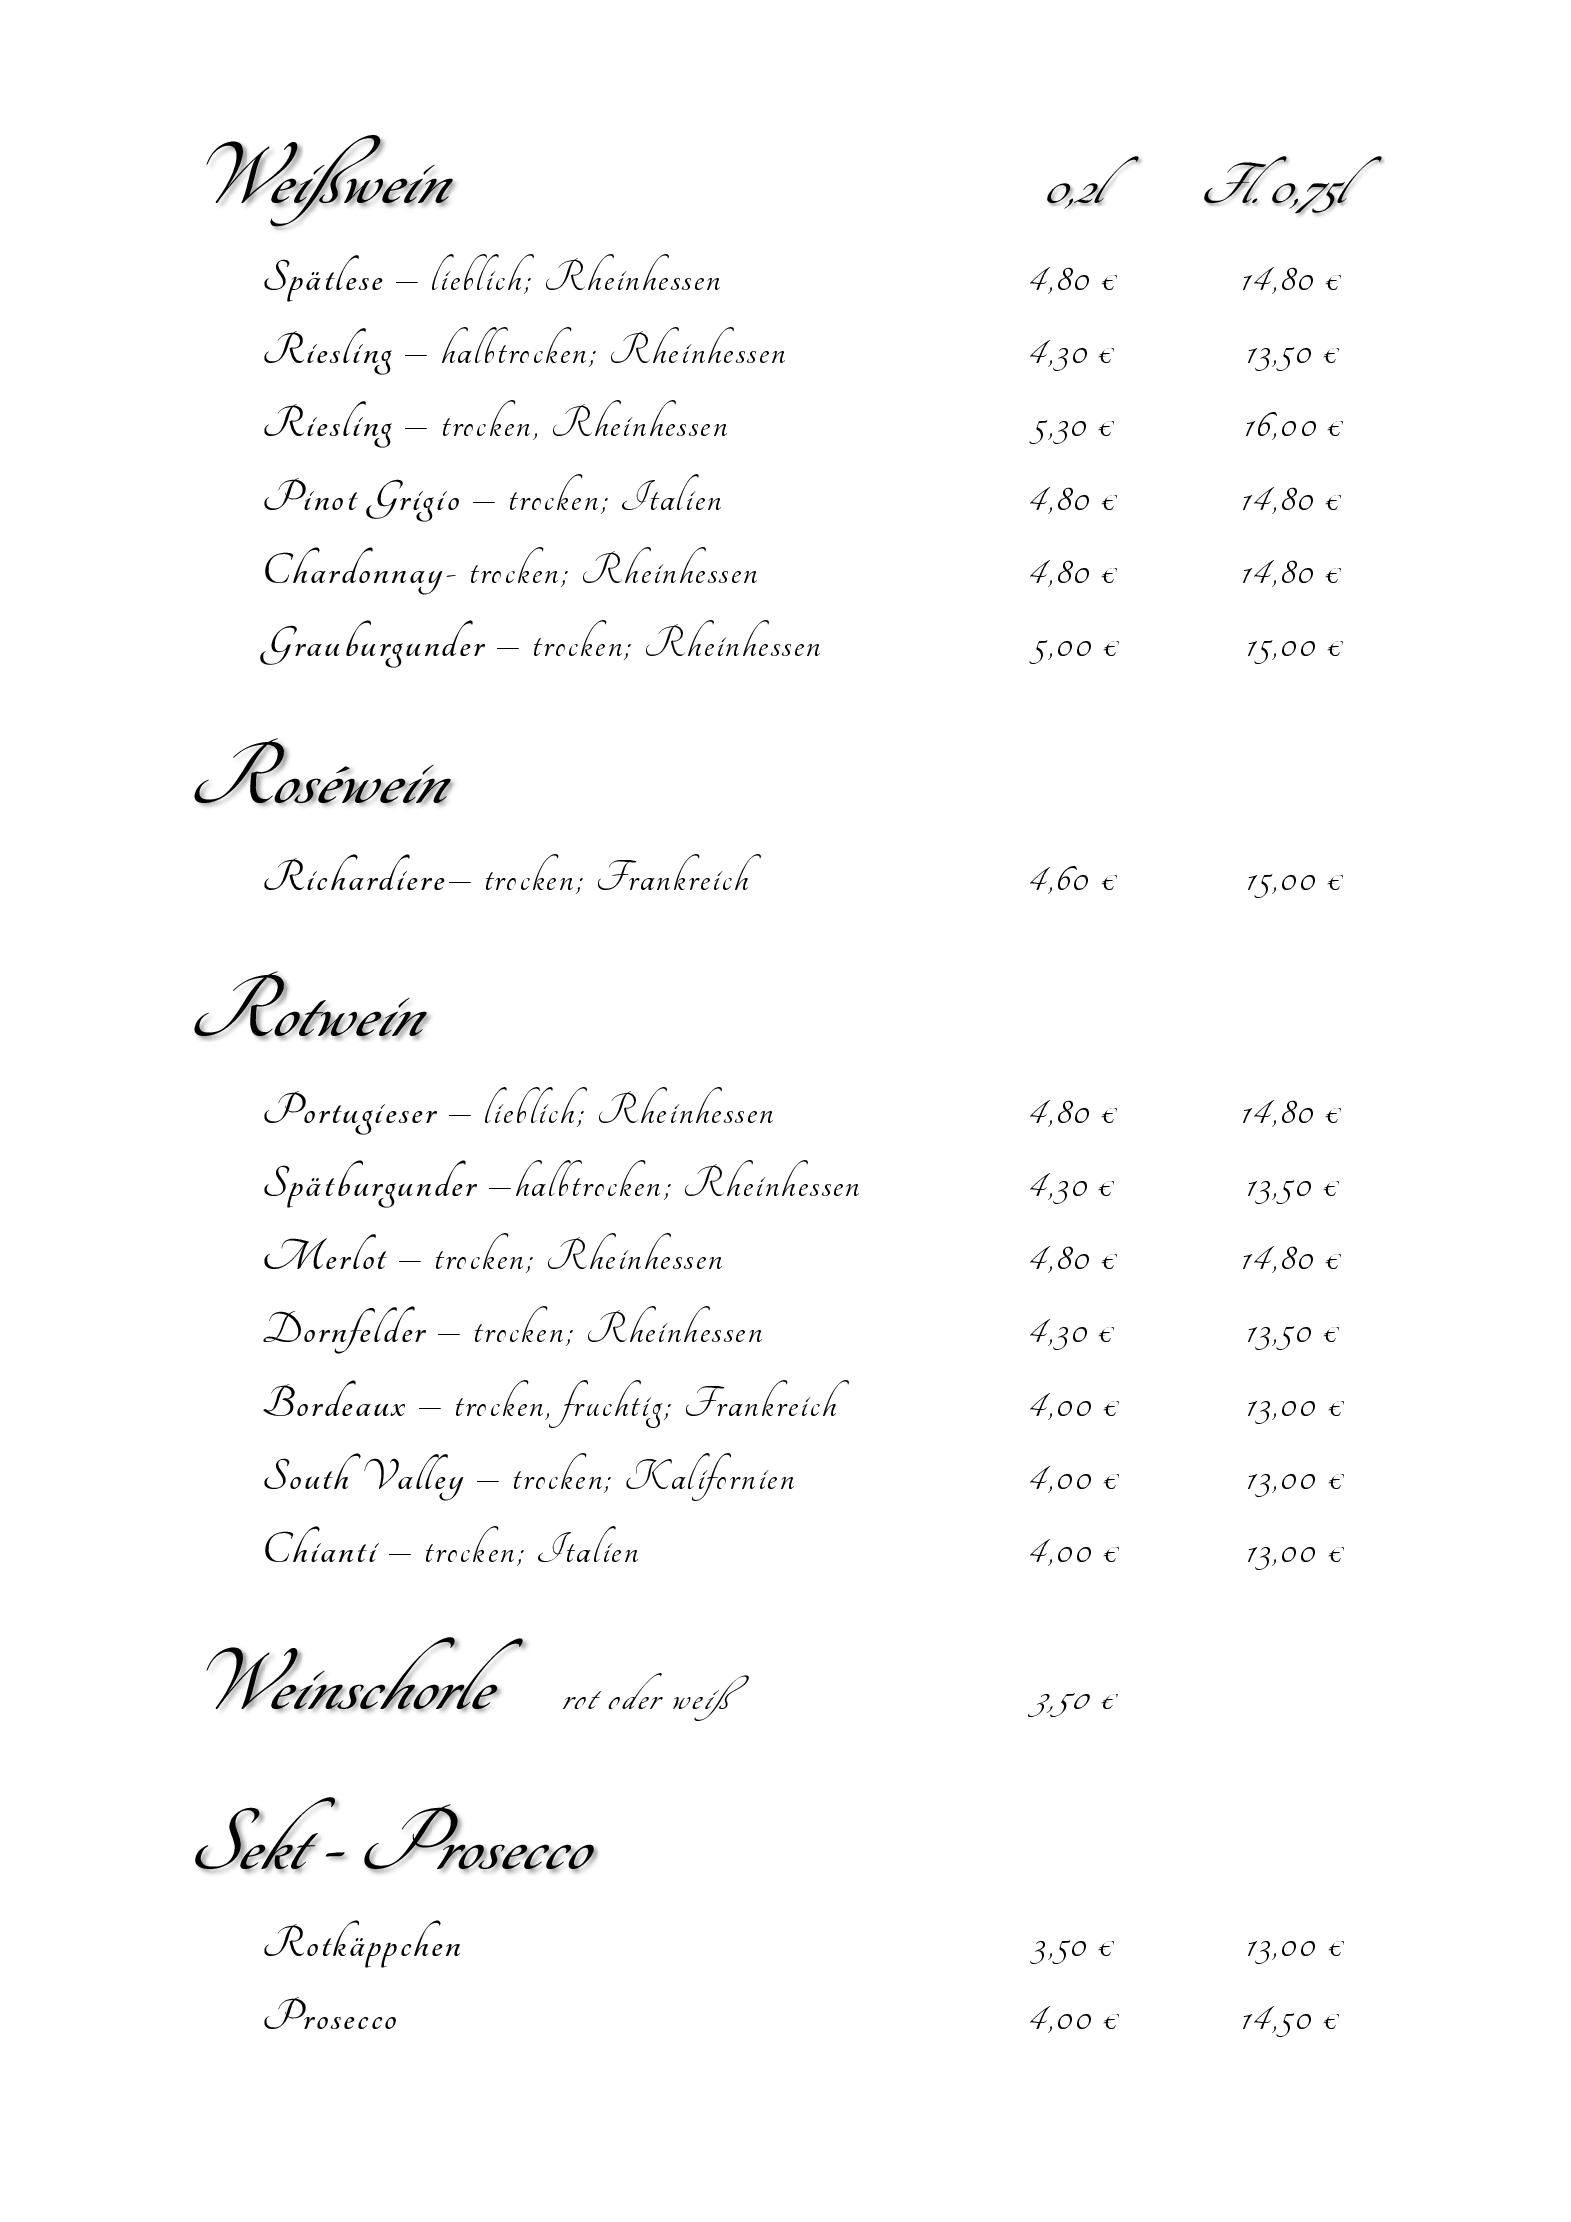 Weißwein 0,2l Fl. 0,75l
Spätlese – lieblich; Rheinhessen 4,80 € 14,80 €
Riesling – halbtrocken; Rheinhessen 4,30 € 13,50 €
Riesling – trocken, Rheinhessen 5,30 € 16,00 €
Pinot Grigio – trocken; Italien 4,80 € 14,80 €
Chardonnay- trocken; Rheinhessen 4,80 € 14,80 €
Grauburgunder – trocken; Rheinhessen 5,00 € 15,00 €
Roséwein
Richardiere– trocken; Frankreich 4,60 € 15,00 €
Rotwein
Portugieser – lieblich; Rheinhessen 4,80 € 14,80 €
Spätburgunder –halbtrocken; Rheinhessen 4,30 € 13,50 €
Merlot – trocken; Rheinhessen 4,80 € 14,80 €
Dornfelder – trocken; Rheinhessen 4,30 € 13,50 €
Bordeaux – trocken, fruchtig; Frankreich 4,00 € 13,00 €
South Valley – trocken; Kalifornien 4,00 € 13,00 €
Chianti – trocken; Italien 4,00 € 13,00 €
Weinschorle rot oder weiß 3,50 €
Sekt - Prosecco
Rotkäppchen 3,50 € 13,00 €
Prosecco 4,00 € 14,50 €